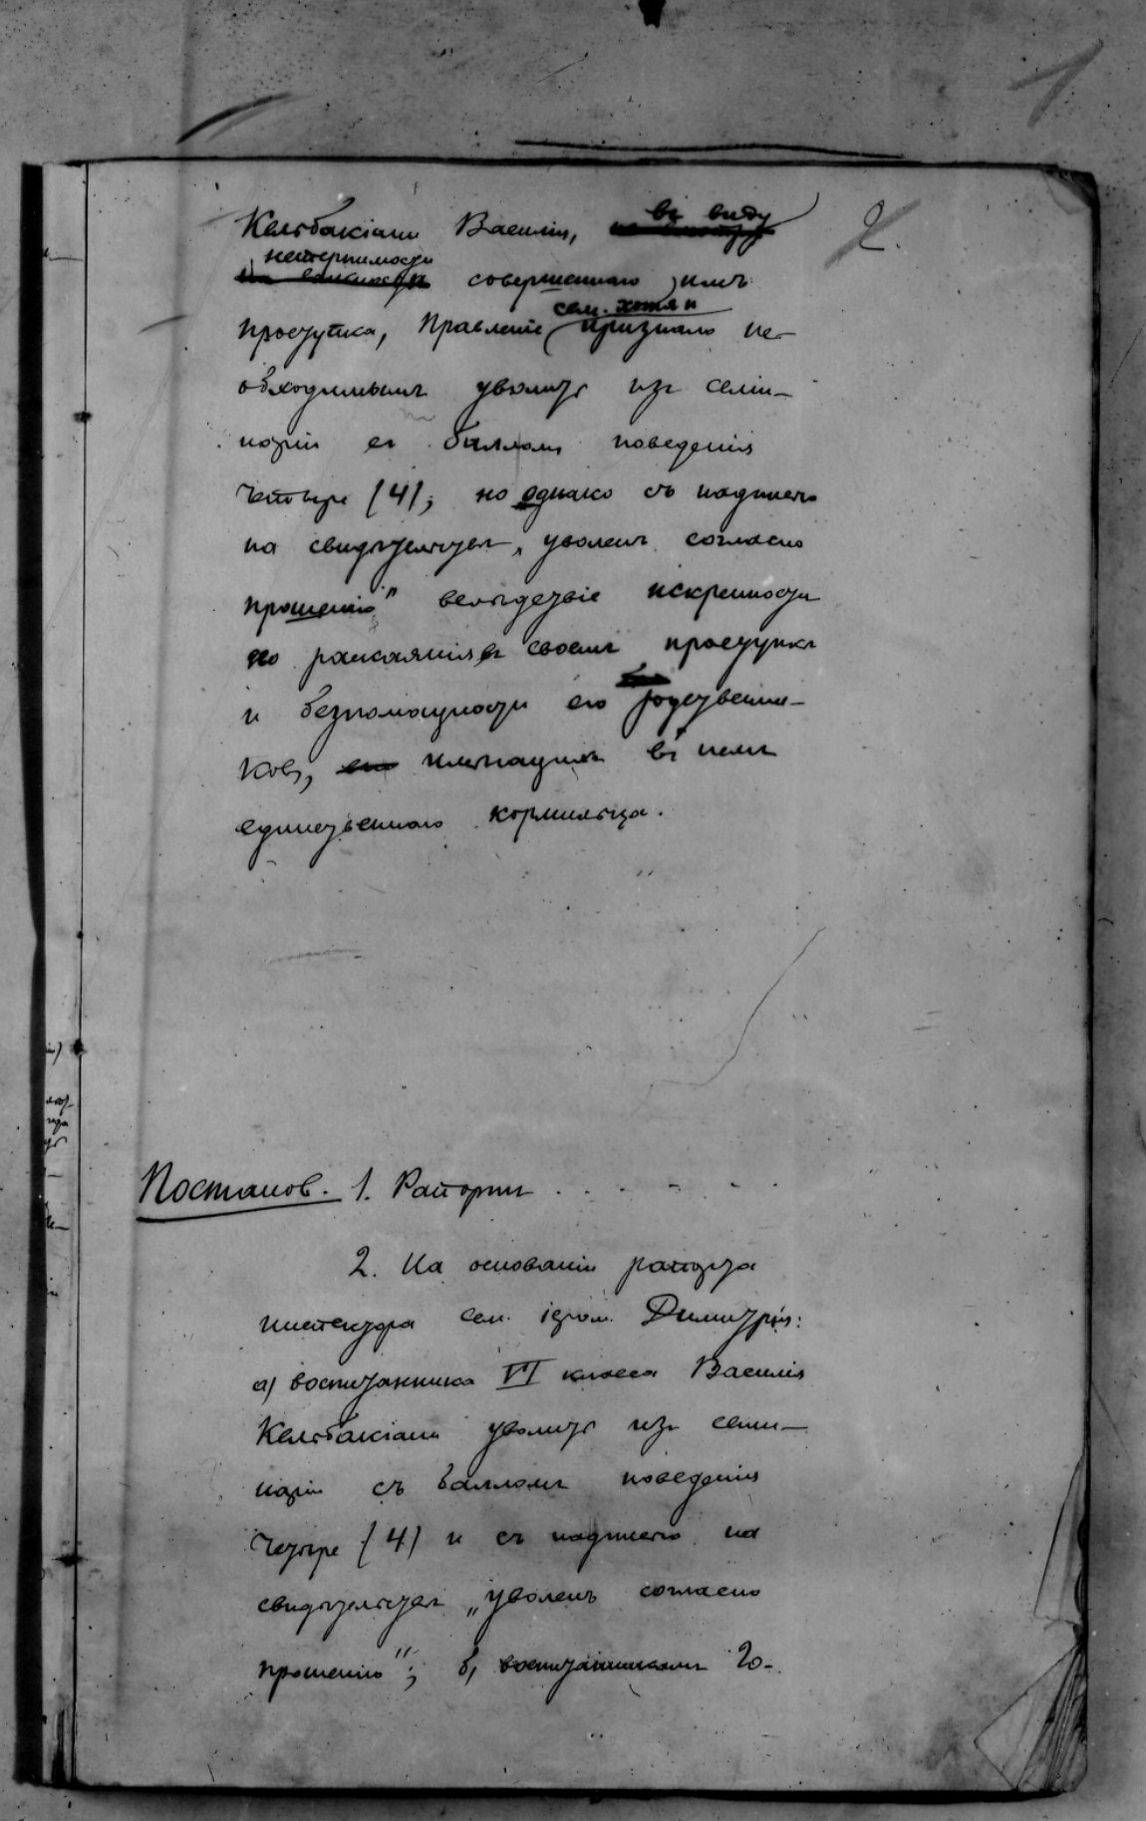 1
2.
Кельбакіани Василія, въ виду
нетерпимости совершеннаго имъ
проступка, Правленіе сем. хотя и признало не-
обходимымъ уволить изъ семи-
наріи съ балломъ поведенія
четыре (4); но однако съ надписью
на свидѣтельствѣ „уволенъ согласно
прошенію" вслѣдствіе искренности
его раскаянія въ своемъ проступкѣ
и безпомощности его родственни-
ковъ, имѣющихъ въ немъ
единственнаго кормильца.
Постанов. 1. Рапортъ . . - - - -
2. На основаніи рапорта
инспектора сем. іером. Димитрія:
а) воспитанника VI класса Василія
Кельбакіани уволить изъ семи-
наріи съ балломъ поведенія
четыре (4) и съ надписью на
свидѣтельствѣ „уволенъ согласно
прошенію"; б) воспитанникамъ Го-